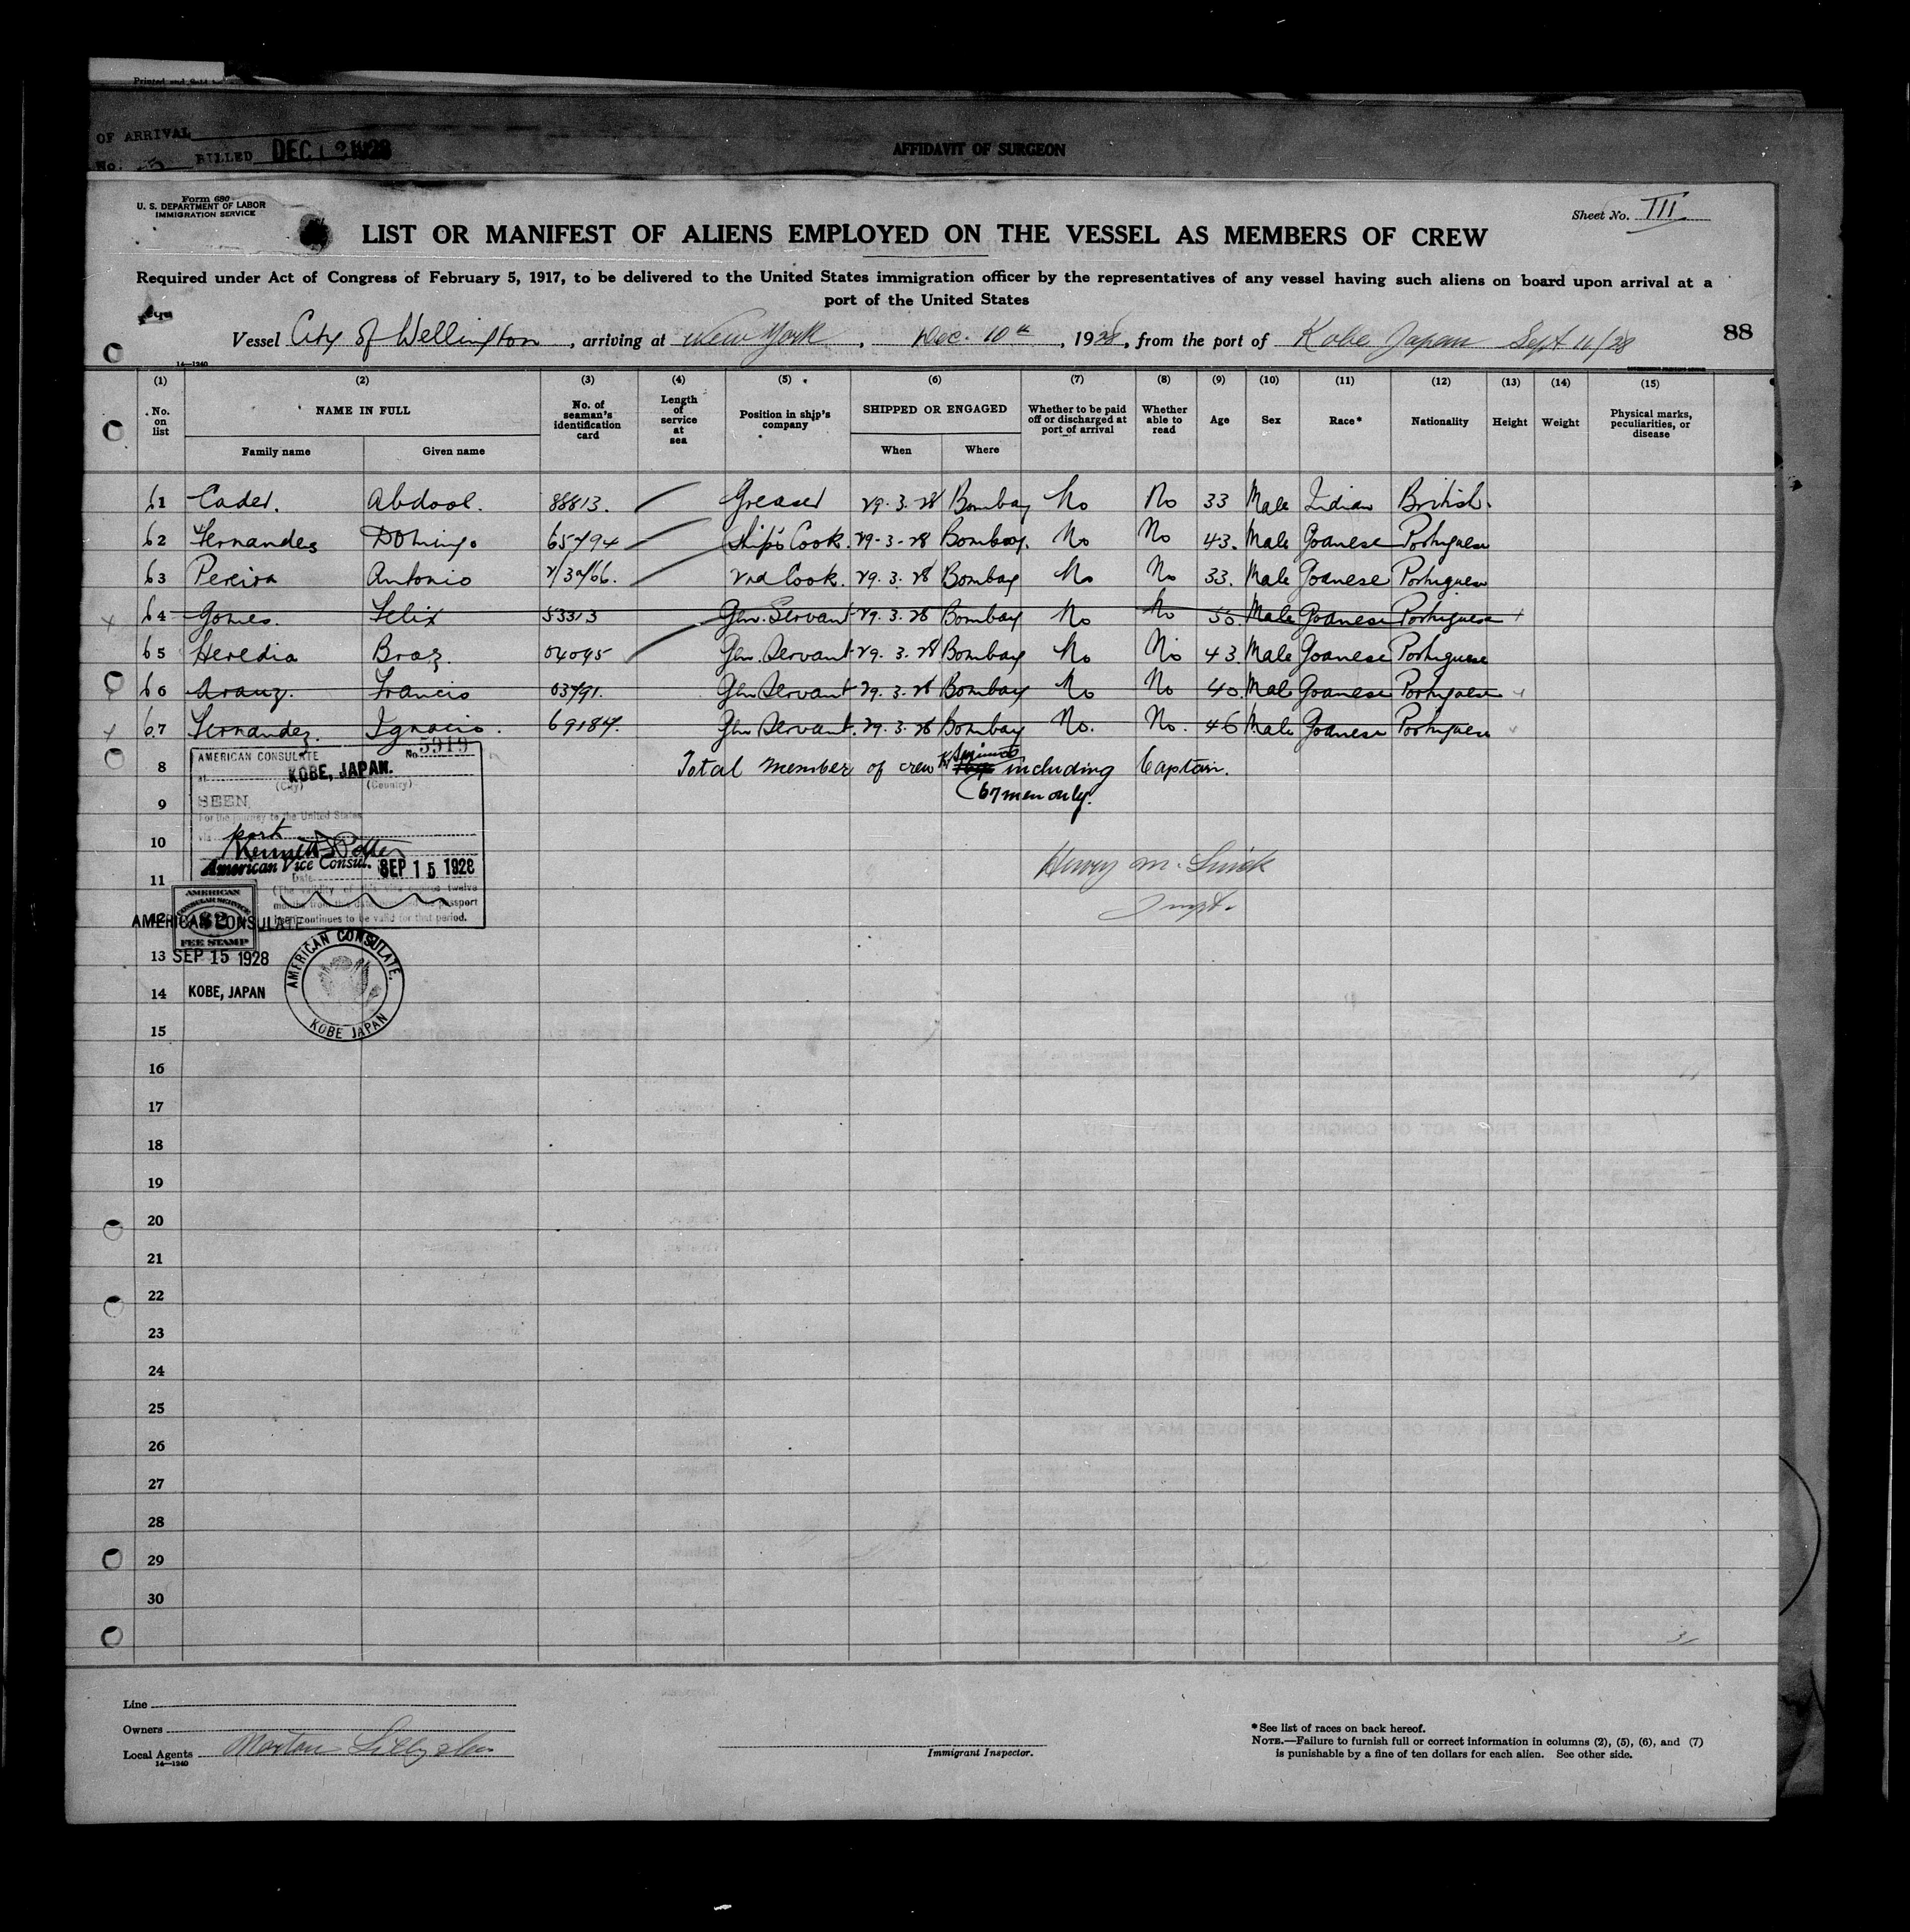 Printed and Sold by
OF ARRIVAL
No. 3 BILLED DEC 12 1928
AFFIDAVIT OF SURGEON
Form 680
U. S. DEPARTMENT OF LABOR
IMMIGRATION SERVICE
Sheet No. III
LIST OR MANIFEST OF ALIENS EMPLOYED ON THE VESSEL AS MEMBERS OF CREW
Required under Act of Congress of February 5, 1917, to be delivered to the United States immigration officer by the representatives of any vessel having such aliens on board upon arrival at a
port of the United States
Vessel City of Wellington, arriving at New York, Dec. 10th, 1928, from the port of Kobe Japan Sept 11/28
88
14—1240
(1) (2) (3) (4) (5) (6) (7) (8) (9) (10) (11) (12) (13) (14) (15)
No. on list NAME IN FULL No. of seaman's identification card Length of service at sea Position in ship's company SHIPPED OR ENGAGED Whether to be paid off or discharged at port of arrival Whether able to read Age Sex Race* Nationality Height Weight Physical marks, peculiarities, or disease
Family name Given name When Where
61 Cader. Abdool. 88813. Greaser 29.3.28 Bombay No No 33 Male Indian British.
62 Fernandes Domingo 65494 Ship's Cook. 29-3-28 Bombay. No No 43. Male Goanese Portuguese
63 Pereira Antonio 2nd Cook. 29.3.28 Bombay No No 33. Male Goanese Portuguese
64 Gomes. Felix 53313 Gen. Servant 29.3.28 Bombay No No Male Goanese Portuguese
65 Heredia Braz. 04095 Gen. Servant 29.3.28 Bombay No No 43. Male Goanese Portuguese
66 Francis Gen Servant 29.3.28 Bombay No No 40. Male Goanese Portuguese
67 Fernandez. Ignacio. 69184. Gen Servant. 29.3.28 Bombay No. No. 46 Male Goanese Portuguese
Total member of crew including Captain.
(67 men only.
8
9
10
11
12
13
14
15
16
17
18
19
20
21
22
23
24
25
26
27
28
29
30
AMERICAN CONSULATE No 5919
at KOBE, JAPAN.
(City) (Country)
SEEN
For the journey to the United States
via port
American Vice Consul. SEP 15 1928
Date
(The validity of this visa expires twelve
months from this date provided the passport
continues to be valid for that period.
AMERICAN
CONSULAR SERVICE
$2
FEE STAMP
AMERICAN CONSULATE
SEP 15 1928
KOBE, JAPAN
AMERICAN CONSULATE.
KOBE JAPAN
Line
Owners
Local Agents
14—1240
Immigrant Inspector.
*See list of races on back hereof.
NOTE.—Failure to furnish full or correct information in columns (2), (5), (6), and (7)
is punishable by a fine of ten dollars for each alien. See other side.